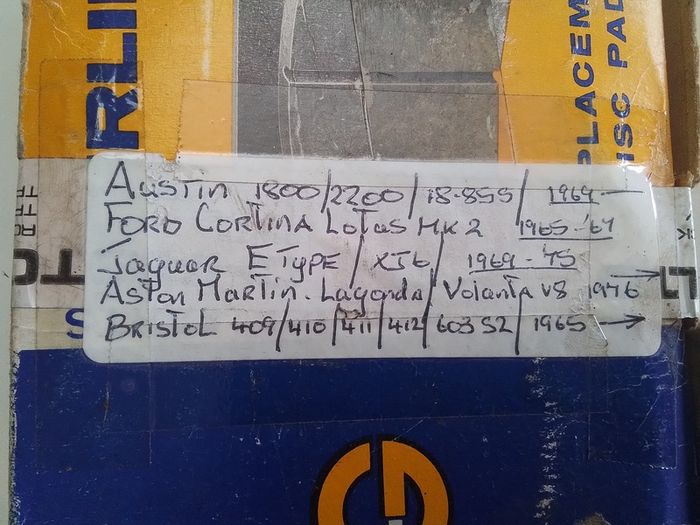 RLIN
PLACEM
ISC PAD
Austin 1800/2200/18-85S/ 1964 —
Ford Cortina Lotus MK2 1965-'67
Jaguar E Type / XJ6 / 1969 - '75
Aston Martin. Lagonda/ Volanta V8 1976 →
Bristol 409/410/411/412/603 S2/ 1965 →